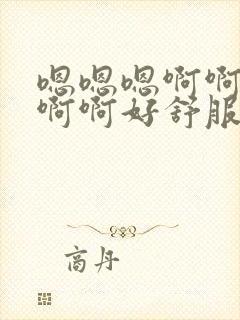 嗯嗯嗯啊啊
啊啊好舒服
商丹